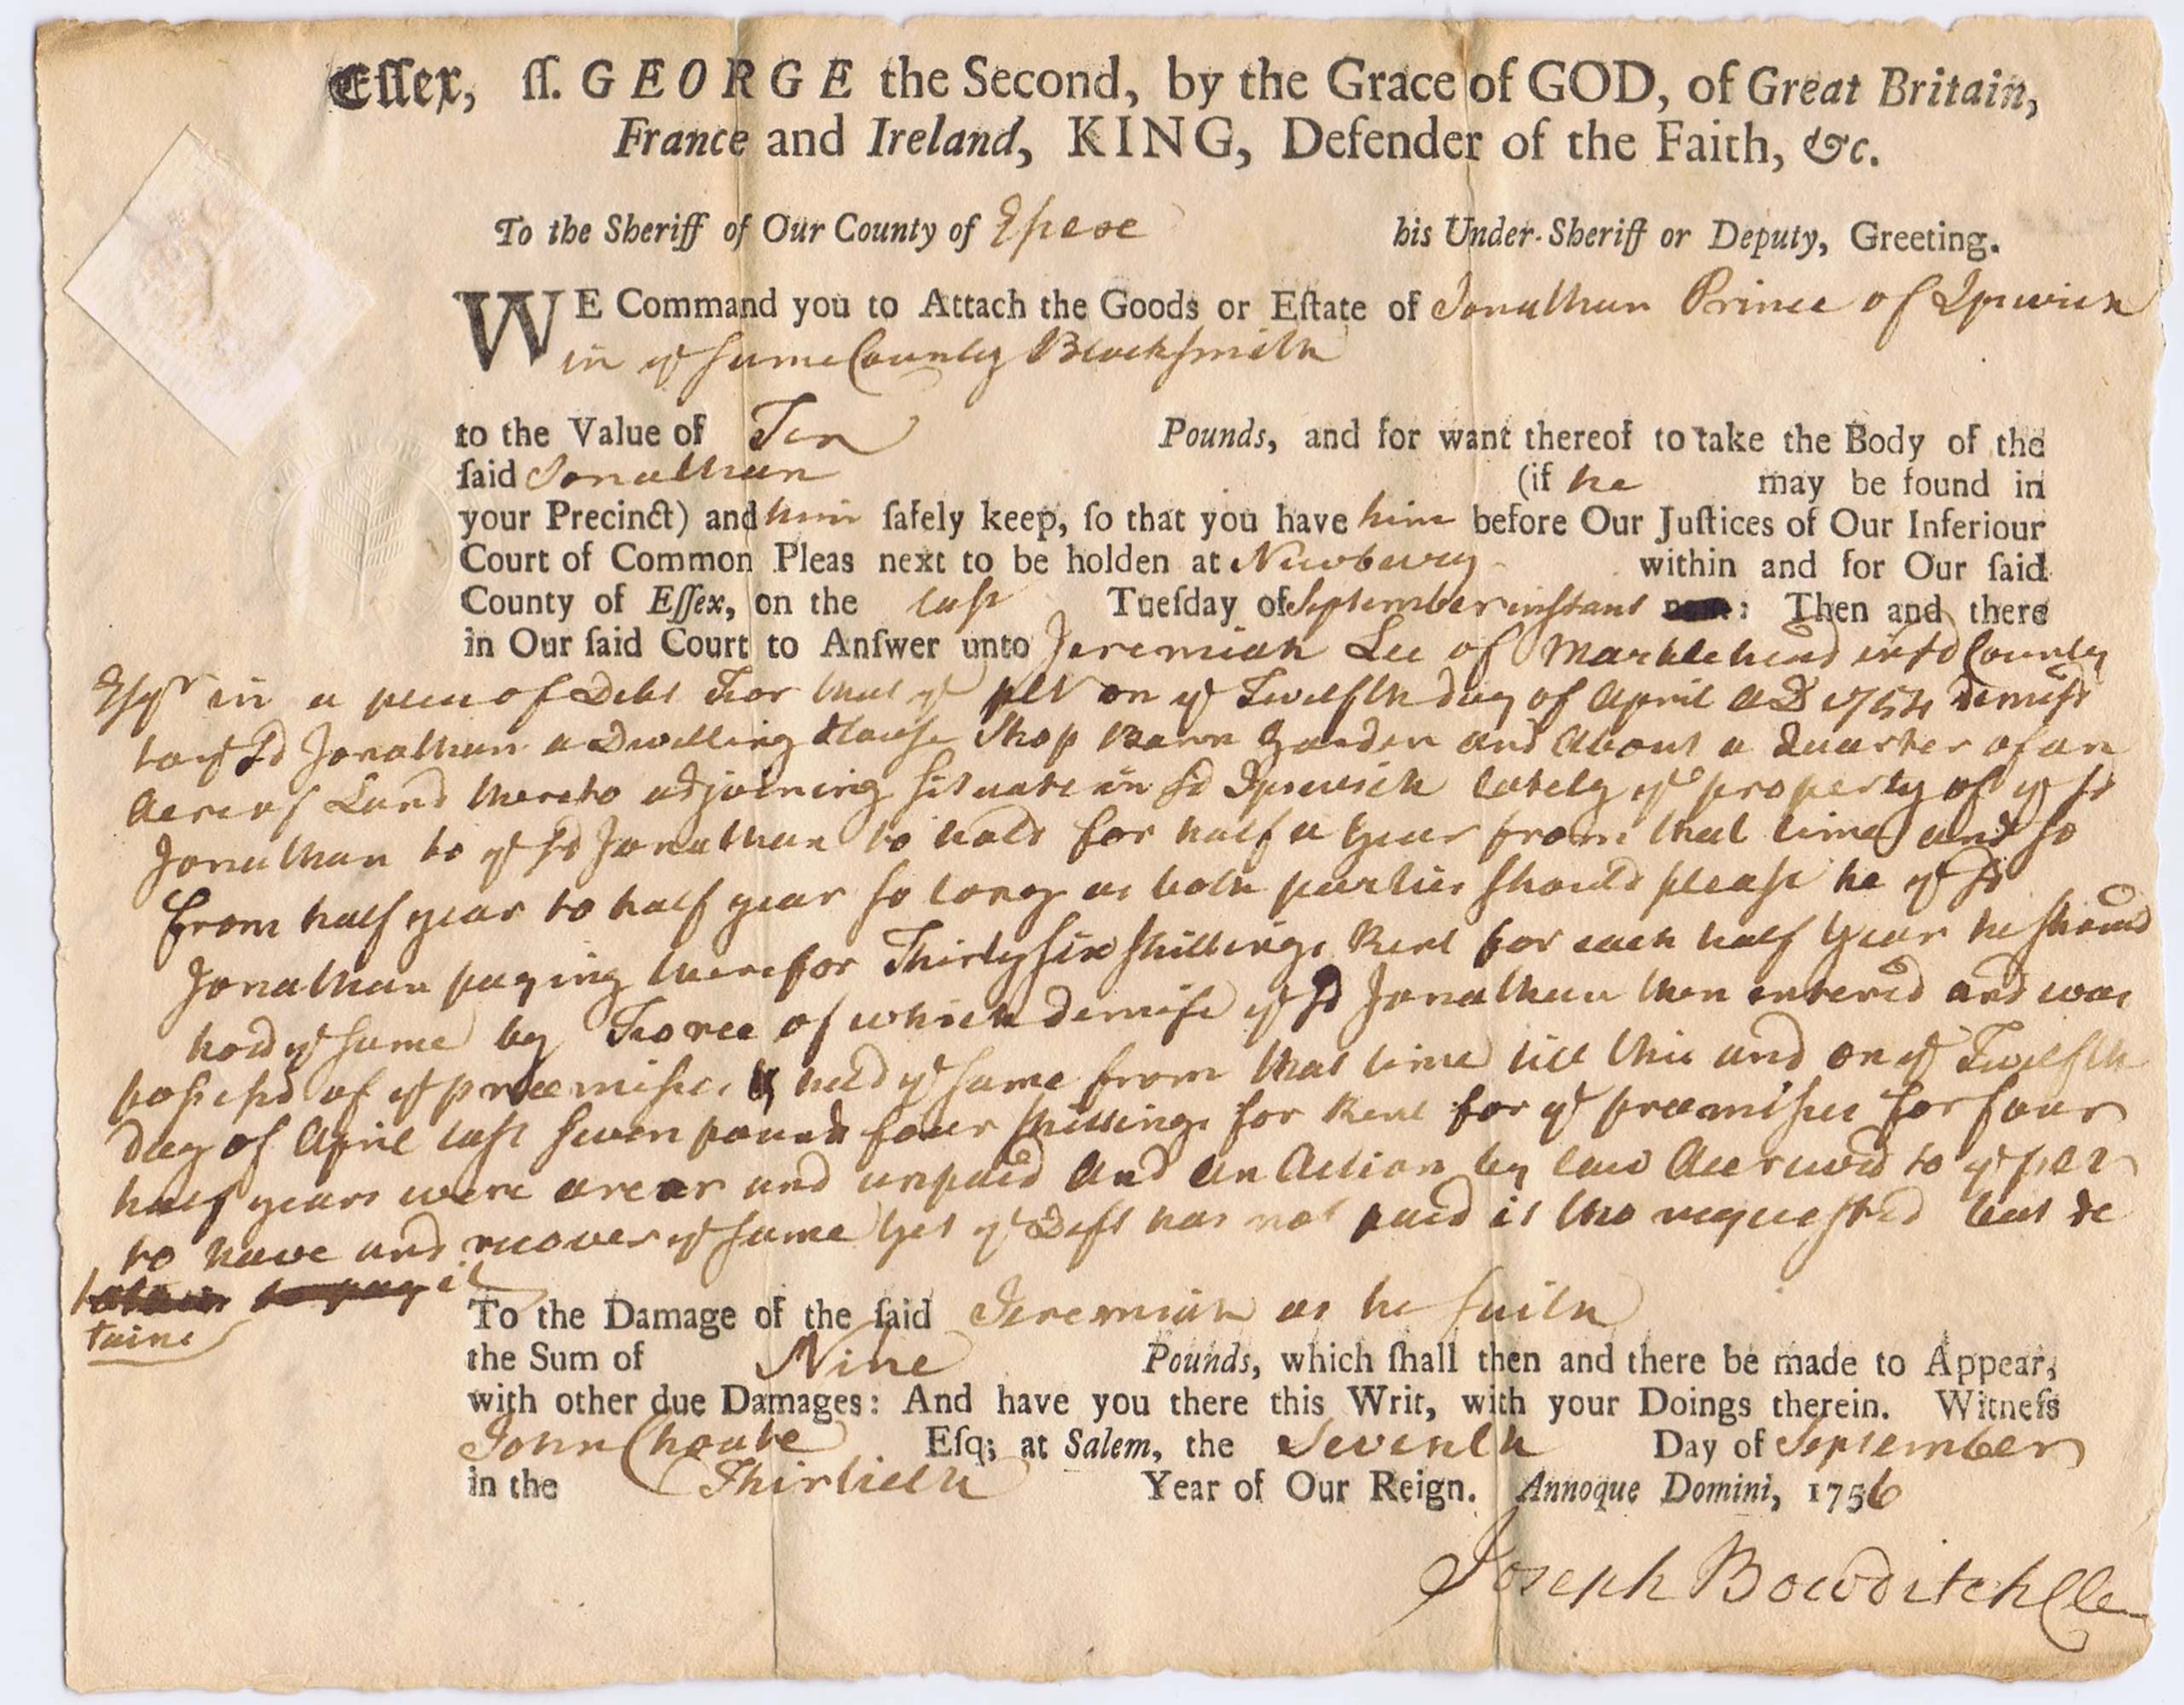 Eſſex, ſſ. GEORGE the Second, by the Grace of GOD, of Great Britain,
France and Ireland, KING, Defender of the Faith, &c.
To the Sheriff of Our County of Essex his Under-Sheriff or Deputy, Greeting.
WE Command you to Attach the Goods or Eſtate of Jonathan Prince of Ipswich
in ye same County Blacksmith
to the Value of Ten Pounds, and for want thereof to take the Body of the
ſaid Jonathan (if he may be found in
your Precinct) and him ſafely keep, ſo that you have him before Our Juſtices of Our Inferiour
Court of Common Pleas next to be holden at Newbury within and for Our ſaid
County of Eſſex, on the last Tueſday of September instant : Then and there
in Our ſaid Court to Anſwer unto Jeremiah Lee of Marblehead in sd County
Esqr in a plea of Debt For that ye plt on ye Twelfth day of April AD 1754 demisd
to ye sd Jonathan a Dwelling House Shop Barn Garden and About a Quarter of an
Acre of Land thereto adjoining situate in sd Ipswich lately ye property of ye sd
Jonathan to ye sd Jonathan to hold for half a Year from that time and so
from half year to half year so long as both parties should please he ye sd
Jonathan paying therefor Thirty six shillings Rent for each half Year he should
hold ye same by Force of which demise ye sd Jonathan then entered and was
possessd of ye præmises & held ye same from that time till this and on ye Twelfth
day of April last seven pounds four shillings for Rent for ye præmises for four
half years were arear and unpaid And An Action by law Accrued to ye plt
to have and recover ye same Yet ye Deft has not paid it tho requested but de
it
taines
To the Damage of the ſaid Jeremiah as he saith
the Sum of Nine Pounds, which ſhall then and there be made to Appear,
with other due Damages: And have you there this Writ, with your Doings therein. Witneſs
John Choate Eſq; at Salem, the Seventh Day of September
in the Thirtieth Year of Our Reign. Annoque Domini, 1756
Joseph Bowditch Cler